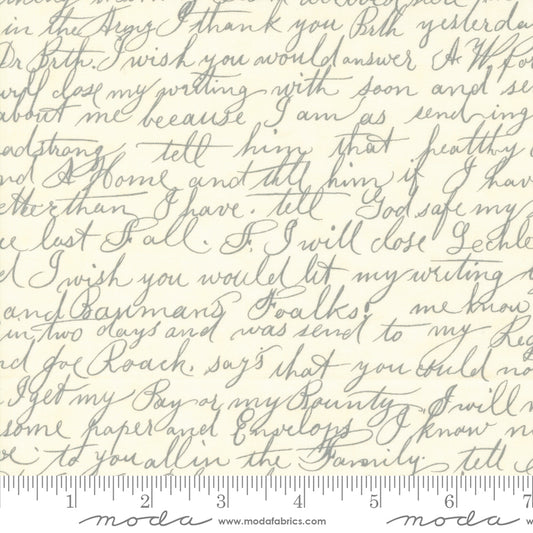 in the Army I thank you Brth yesterda
Dr Brth. I wish you would answer A. W. for
will close my writing with soon and se
about me because I am as sending
adstrong tell him that pealthy
nd A Home and till him if I hav
etter than I have. tell God safe my
ce last Fall. F. I will close Lechle
d I wish you would lit my writing
and Baumans Foalks. me know
in two days and was send to my Reg
nd Joe Roach. says that you could no
I get my Pay or my Bounty I will
some paper and Envelops I know n
to you all in the Family. tell
1 2 3 4 5 6 7
moda www.modafabrics.com moda